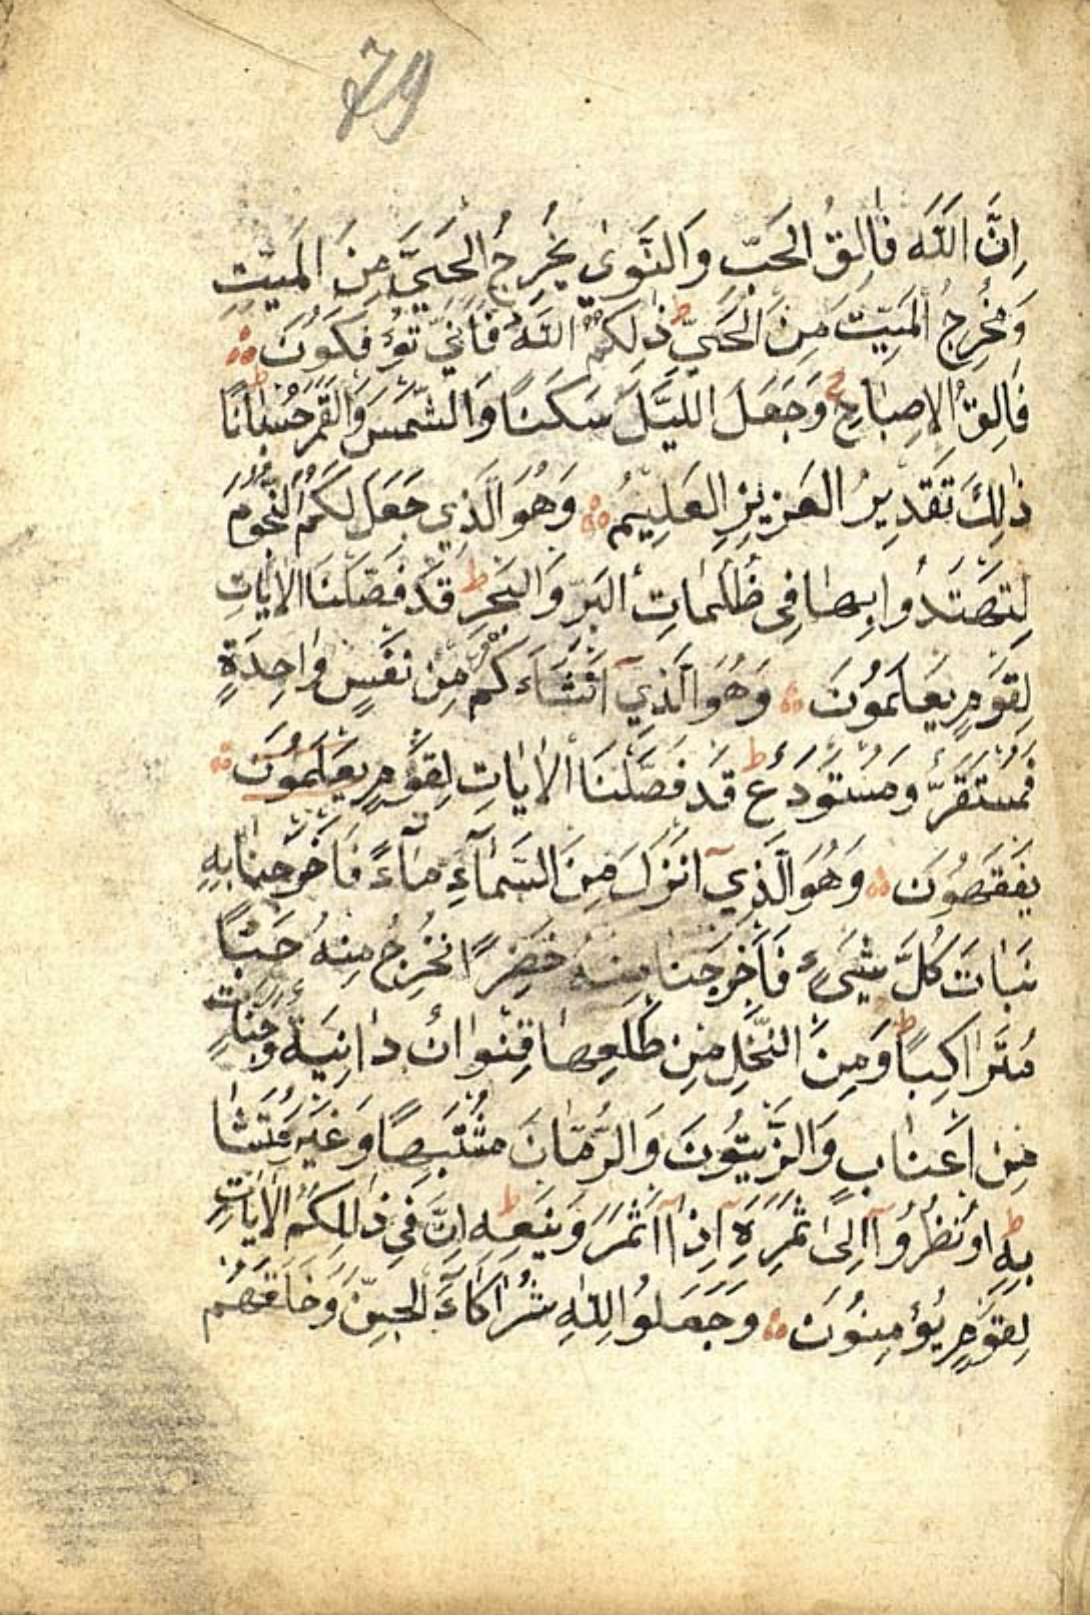 79
اِنَّ اللّٰهَ فَالِقُ الْحَبِّ وَالنَّوٰى يُخْرِجُ الْحَيَّ مِنَ الْمَيِّتِ
وَمُخْرِجُ الْمَيِّتِ مِنَ الْحَيِّ ط ذٰلِكُمُ اللّٰهُ فَاَنّٰي تُؤْفَكُونَ
فَالِقُ الْاِصْبَاحِ وَجَعَلَ اللَّيْلَ سَكَنًا وَالشَّمْسَ وَالْقَمَرَ حُسْبَانًا ط
ذٰلِكَ تَقْدِيرُ الْعَزِيزِ الْعَلِيمُ وَهُوَ الَّذِي جَعَلَ لَكُمُ النُّجُومَ
لِتَهْتَدُوا بِهَا فِي ظُلُمَاتِ الْبَرِّ وَالْبَحْرِ ط قَدْ فَصَّلْنَا الْاٰيَاتِ
لِقَوْمٍ يَعْلَمُونَ وَهُوَ الَّذِيٓ اَنْشَاَءَكُمْ مِنْ نَفْسٍ وَاحِدَةٍ
فَمُسْتَقَرٌّ وَمُسْتَوْدَعٌ ط قَدْ فَصَّلْنَا الْاٰيَاتِ لِقَوْمٍ يَعْلَمُونَ
يَفْقَهُونَ وَهُوَ الَّذِيٓ اَنْزَلَ مِنَ السَّمَآءِ مَآءً فَاَخْرَجْنَا بِهِ
نَبَاتَ كُلَّ شَيْءٍ فَاَخْرَجْنَا مِنْهُ خَضِرًا نُخْرِجُ مِنْهُ حَبًّا
مُتَرَاكِبًا ط وَمِنَ النَّخْلِ مِنْ طَلْعِهَا قِنْوَانٌ دَانِيَةٌ وَجَنَّاتٍ
مِنْ اَعْنَابٍ وَالزَّيْتُونَ وَالرُّمَّانَ مُشْتَبِهًا وَغَيْرَ مُتَشَا
بِهٍ ط اُونْظُرُوٓا اِلٰى ثَمَرِهِ اِذَآ اَثْمَرَ وَيَنْعِهِ ط اِنَّ فِي ذٰلِكُمُ الْاٰيَاتِ
لِقَوْمٍ يُؤْمِنُونَ وَجَعَلُوا لِلّٰهِ شُرَاكَاءَ الْجِنِّ وَخَلَقَهُمْ